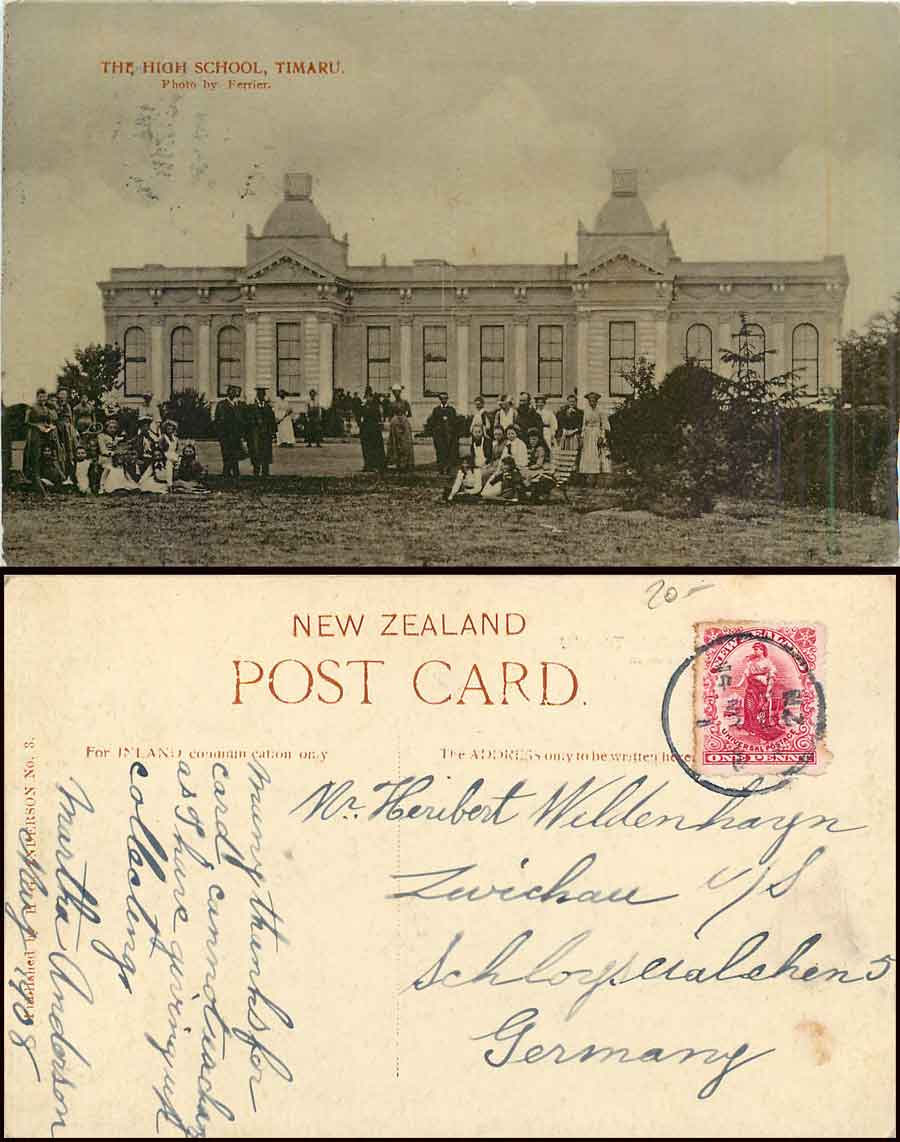 THE HIGH SCHOOL, TIMARU.
Photo by Ferrier.
20-
NEW ZEALAND
POST CARD.
NEW ZEALAND
UNIVERSAL POSTAGE
ONE PENNY
For INLAND communication only
The ADDRESS only to be written here
Mr. Heribert Weldenhayn
Zwichau i/S
Germany
Many thanks for
card cannot exchange
as I have giving up
collecting.
Murtha Anderson
1908
ANDERSON No. 3.